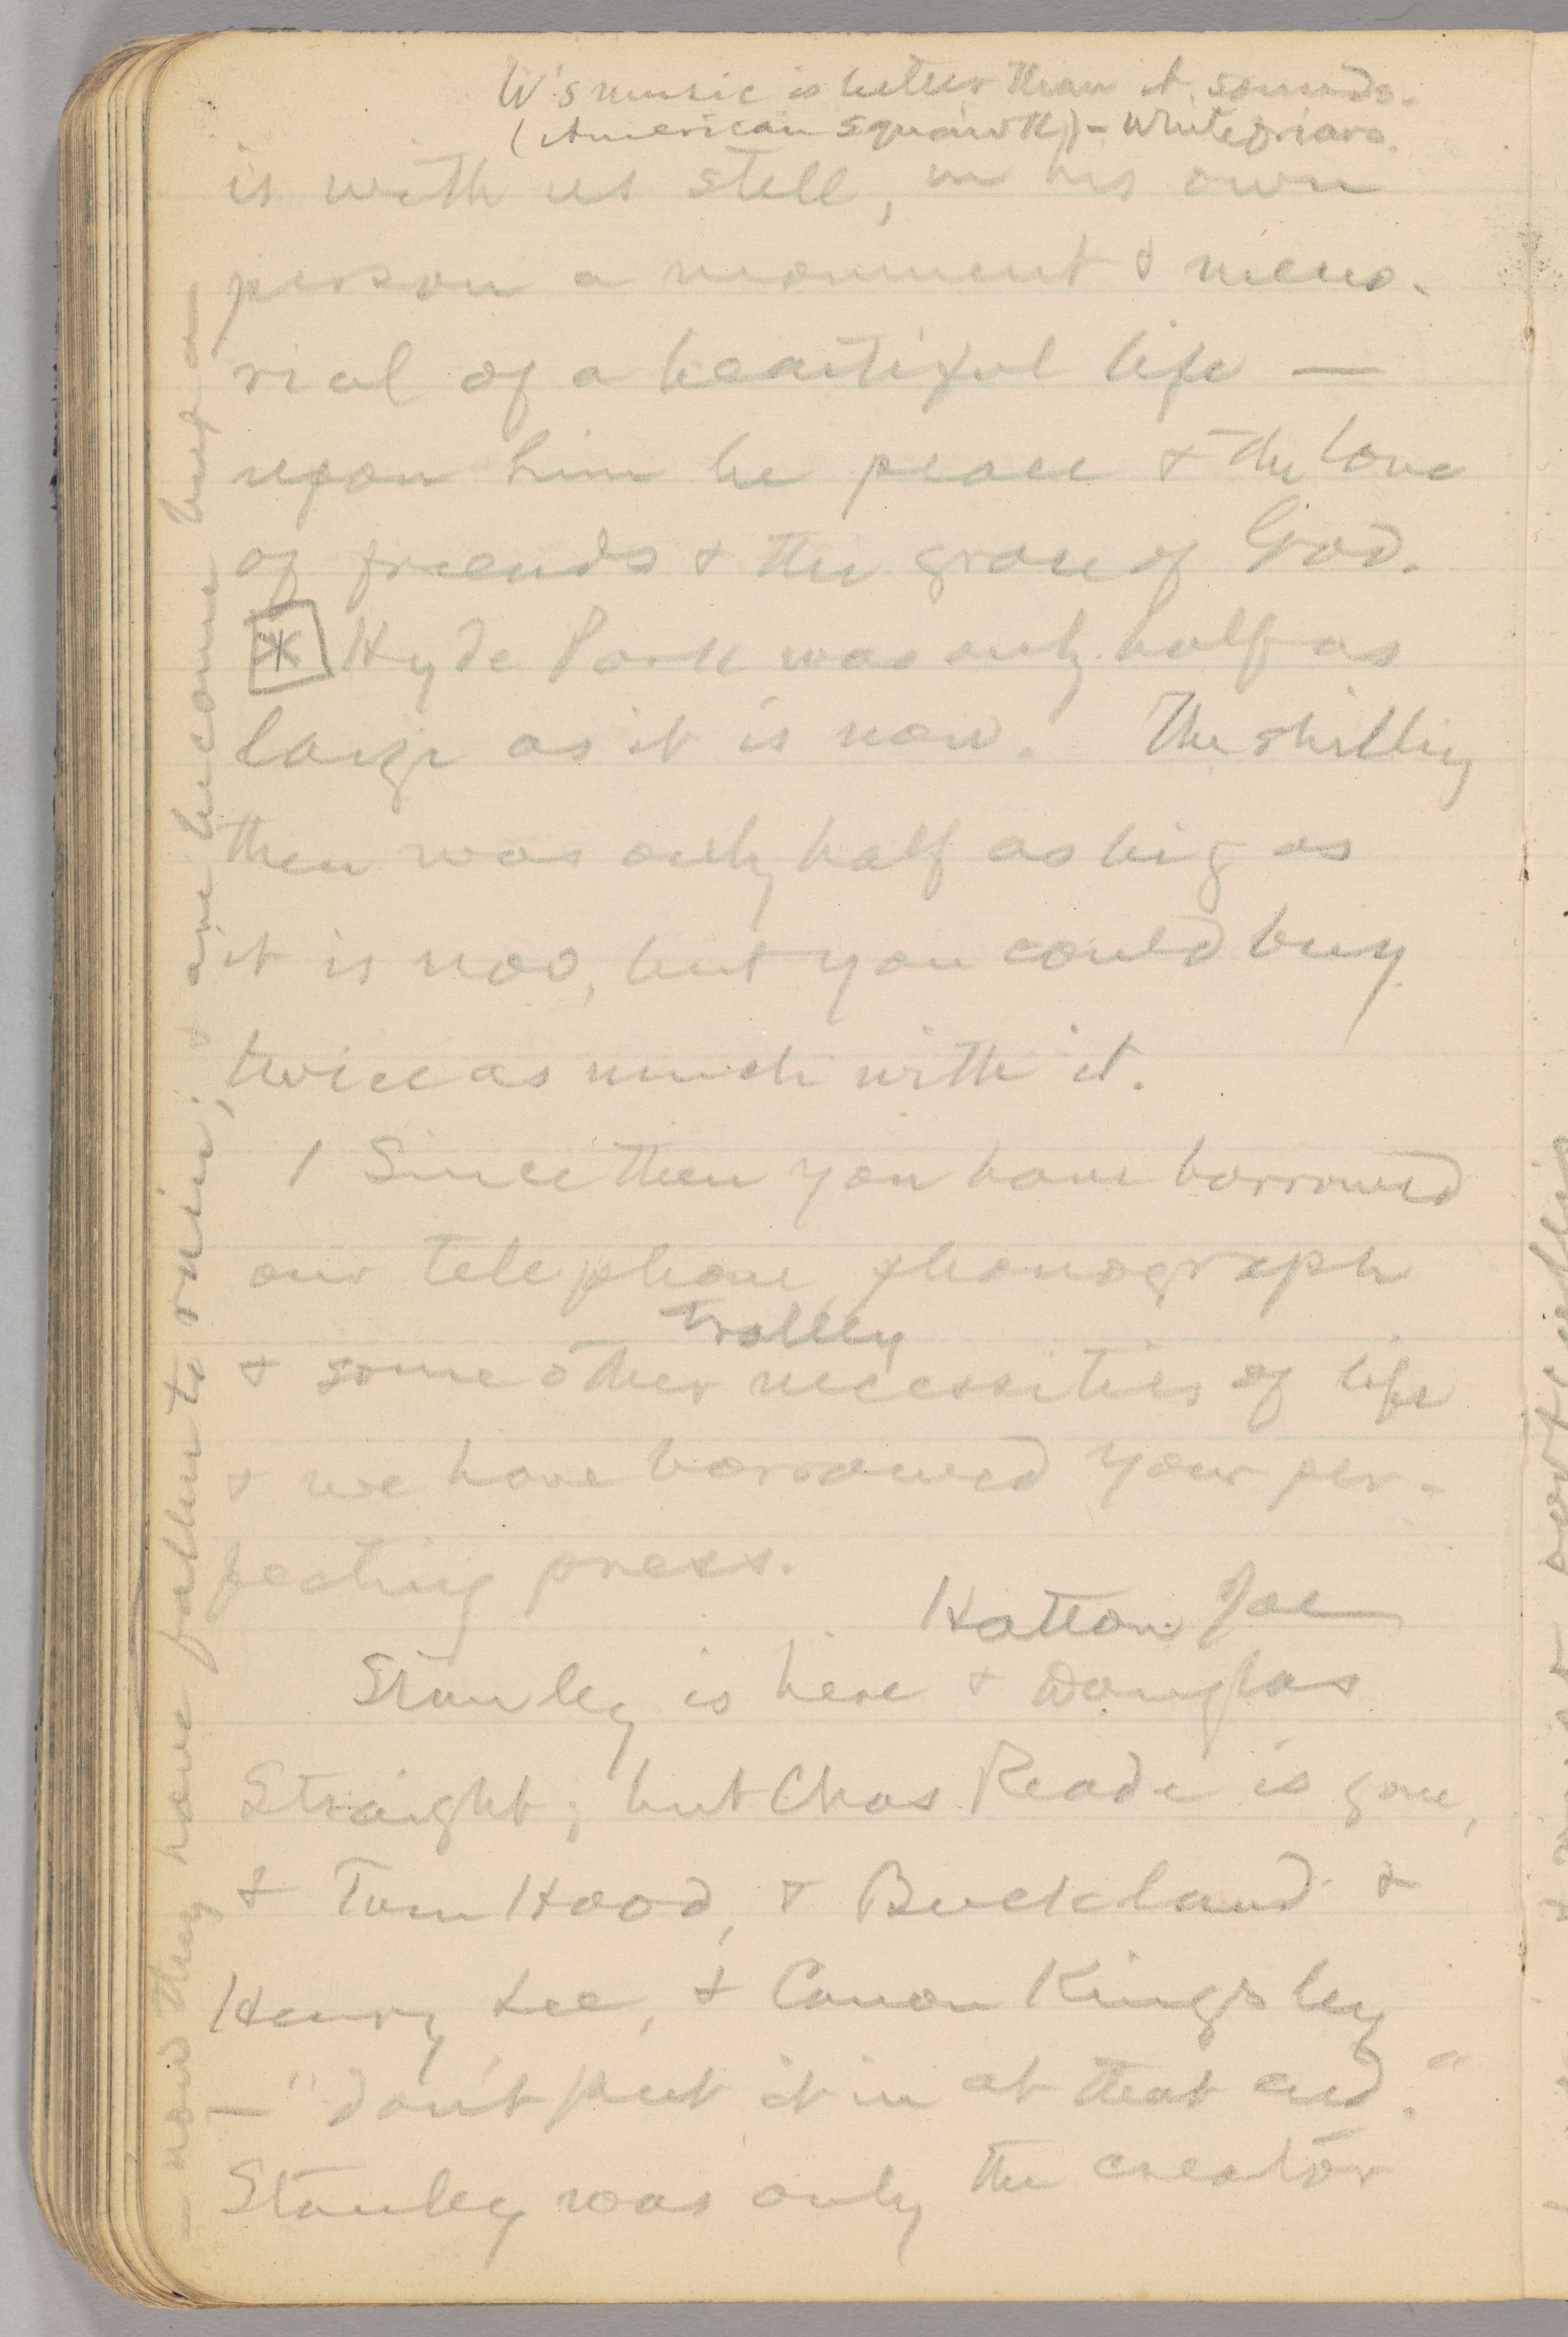 W's music is better than it sounds.
(American squawk) – Whitefriars.
is with us still, in his own
person a monument & memo-
rial of a beautiful life —
upon him be peace & the love
of friends & the grace of God.
* Hyde Park was only half as
large as it is now. The shilling
then was only half as big as
it is now, but you could buy
twice as much with it.
/ Since then you have borrowed
our telephone, phonograph
trolley
& some other necessities of life
& we have borrowed your per-
fecting press.
Hatton Joe
Stanley is here & Douglas
Straight; but Chas Reade is gone,
& Tom Hood, & Buckland &
Henry Lee, & Canon Kingsley
— "don't put it in at that end."
Stanley was only the creator
— now they have fallen to ruin; & one become